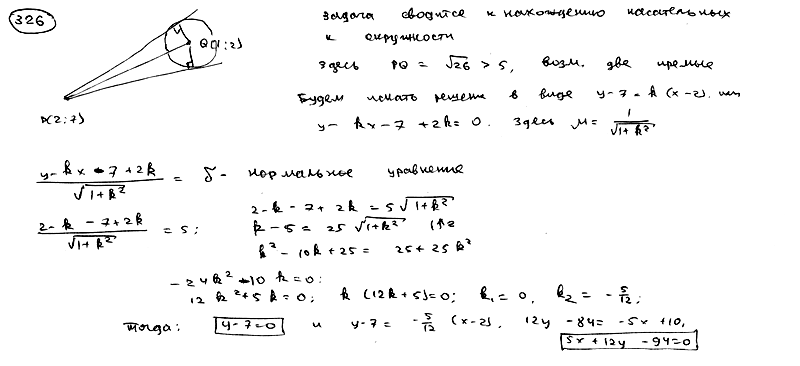 326
Задача сводится к нахождению касательных
к окружности
Q(1;2)
Здесь PQ = √26 > 5, возм. две прямые
Будем искать решение в виде y-7=k(x-2). или
P(2;7)
y - kx - 7 + 2k = 0. Здесь M = 1/√(1+k²)
(y - kx - 7 + 2k)/√(1+k²) = δ - нормальное уравнение
(2 - k - 7 + 2k)/√(1+k²) = 5; 2 - k - 7 + 2k = 5√(1+k²)
k - 5 = 25√(1+k²) ()↑2
k² - 10k + 25 = 25 + 25k²
-24k² - 10k = 0;
12k² + 5k = 0; k(12k+5)=0; k₁ = 0, k₂ = -5/12;
Тогда: y-7=0 и y-7 = -5/12 (x-2), 12y - 84 = -5x + 10,
5x + 12y - 94 = 0